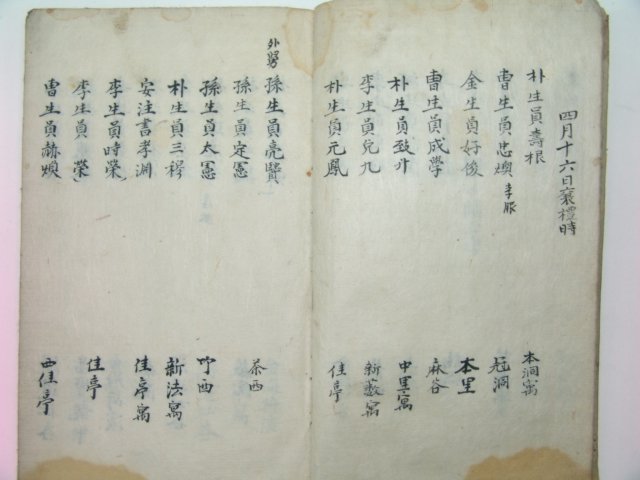 四月十六日襄禮時
朴生員壽根 本洞寓
曺生員忠煥 李豚 冠洞
金生員好俊 本里
曺生員成學 麻谷
朴生員致升 中里寓
李生員兌九 新薮寓
朴生員元鳳 佳亭
外舅 孫生員亮賢
孫生員定憲 茶西
孫生員太憲 竹西
朴生員三稶 新法寓
安注書孝淵 佳亭寓
李生員時榮
李生員 榮 佳亭
曺生員赫煥 西佳亭